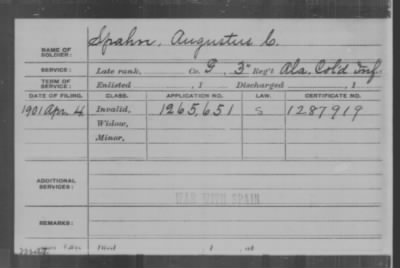 NAME OF SOLDIER: Spahn, Augustus C.
SERVICE: Late rank, Co. G, 3" Reg't Ala. Col'd Inf.
TERM OF SERVICE: Enlisted , 1 Discharged , 1
DATE OF FILING. CLASS. APPLICATION NO. LAW. CERTIFICATE NO.
1901 Apr 4 Invalid, 1265,651 S 1287919
Widow,
Minor,
ADDITIONAL SERVICES:
WAR WITH SPAIN
REMARKS:
Died , 1 , at